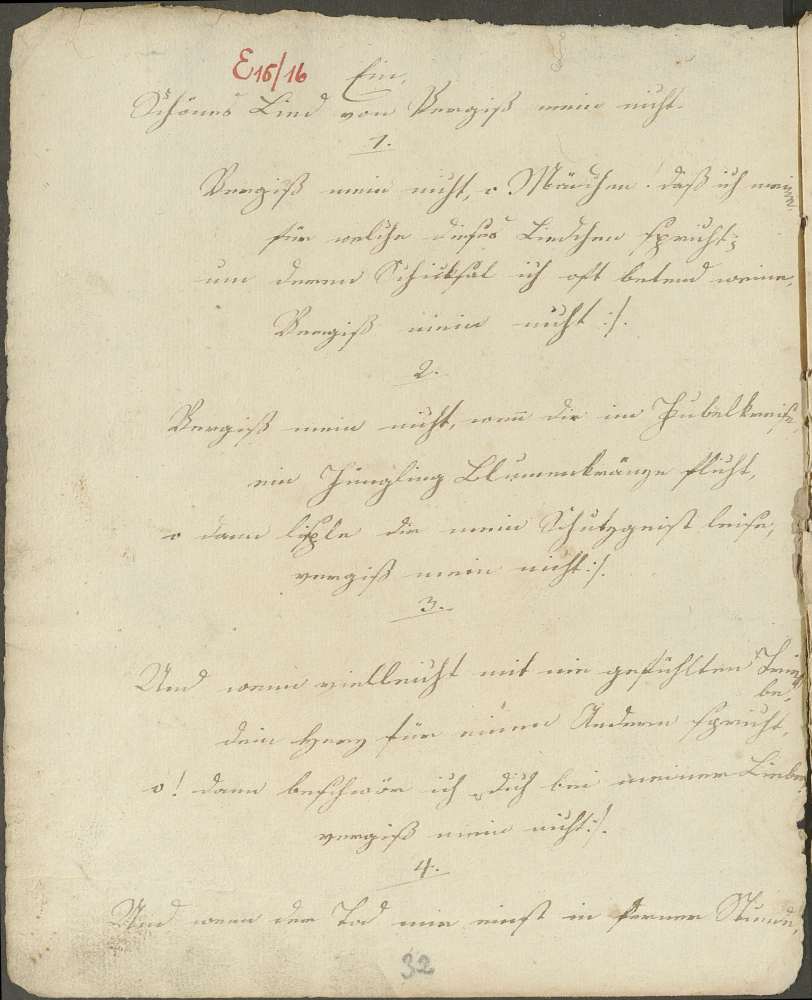 E15/16 Ein,
Schönes Lied von Vergiß mein nicht.
1.
Vergiß mein nicht, o Mädchen! daß ich meine,
für welche dieses Liedchen spricht;
um deren Schicksal ich oft betend weine,
Vergiß mein nicht :/.
2.
Vergiß mein nicht, wenn dir im Jubelkreise,
ein Jüngling Blumenkränze flicht,
o dann lisple dir mein Schutzgeist leise,
vergiß mein nicht:/.
3.
Und wenn vielleicht mit nie gefühlten Trie
be,
dein Herz für einen Andern spricht,
o! dann beschwör ich dich bei meiner Liebe
vergiß mein nicht:/.
4.
Und wenn der Tod mir einst in ferner Stunde,
32